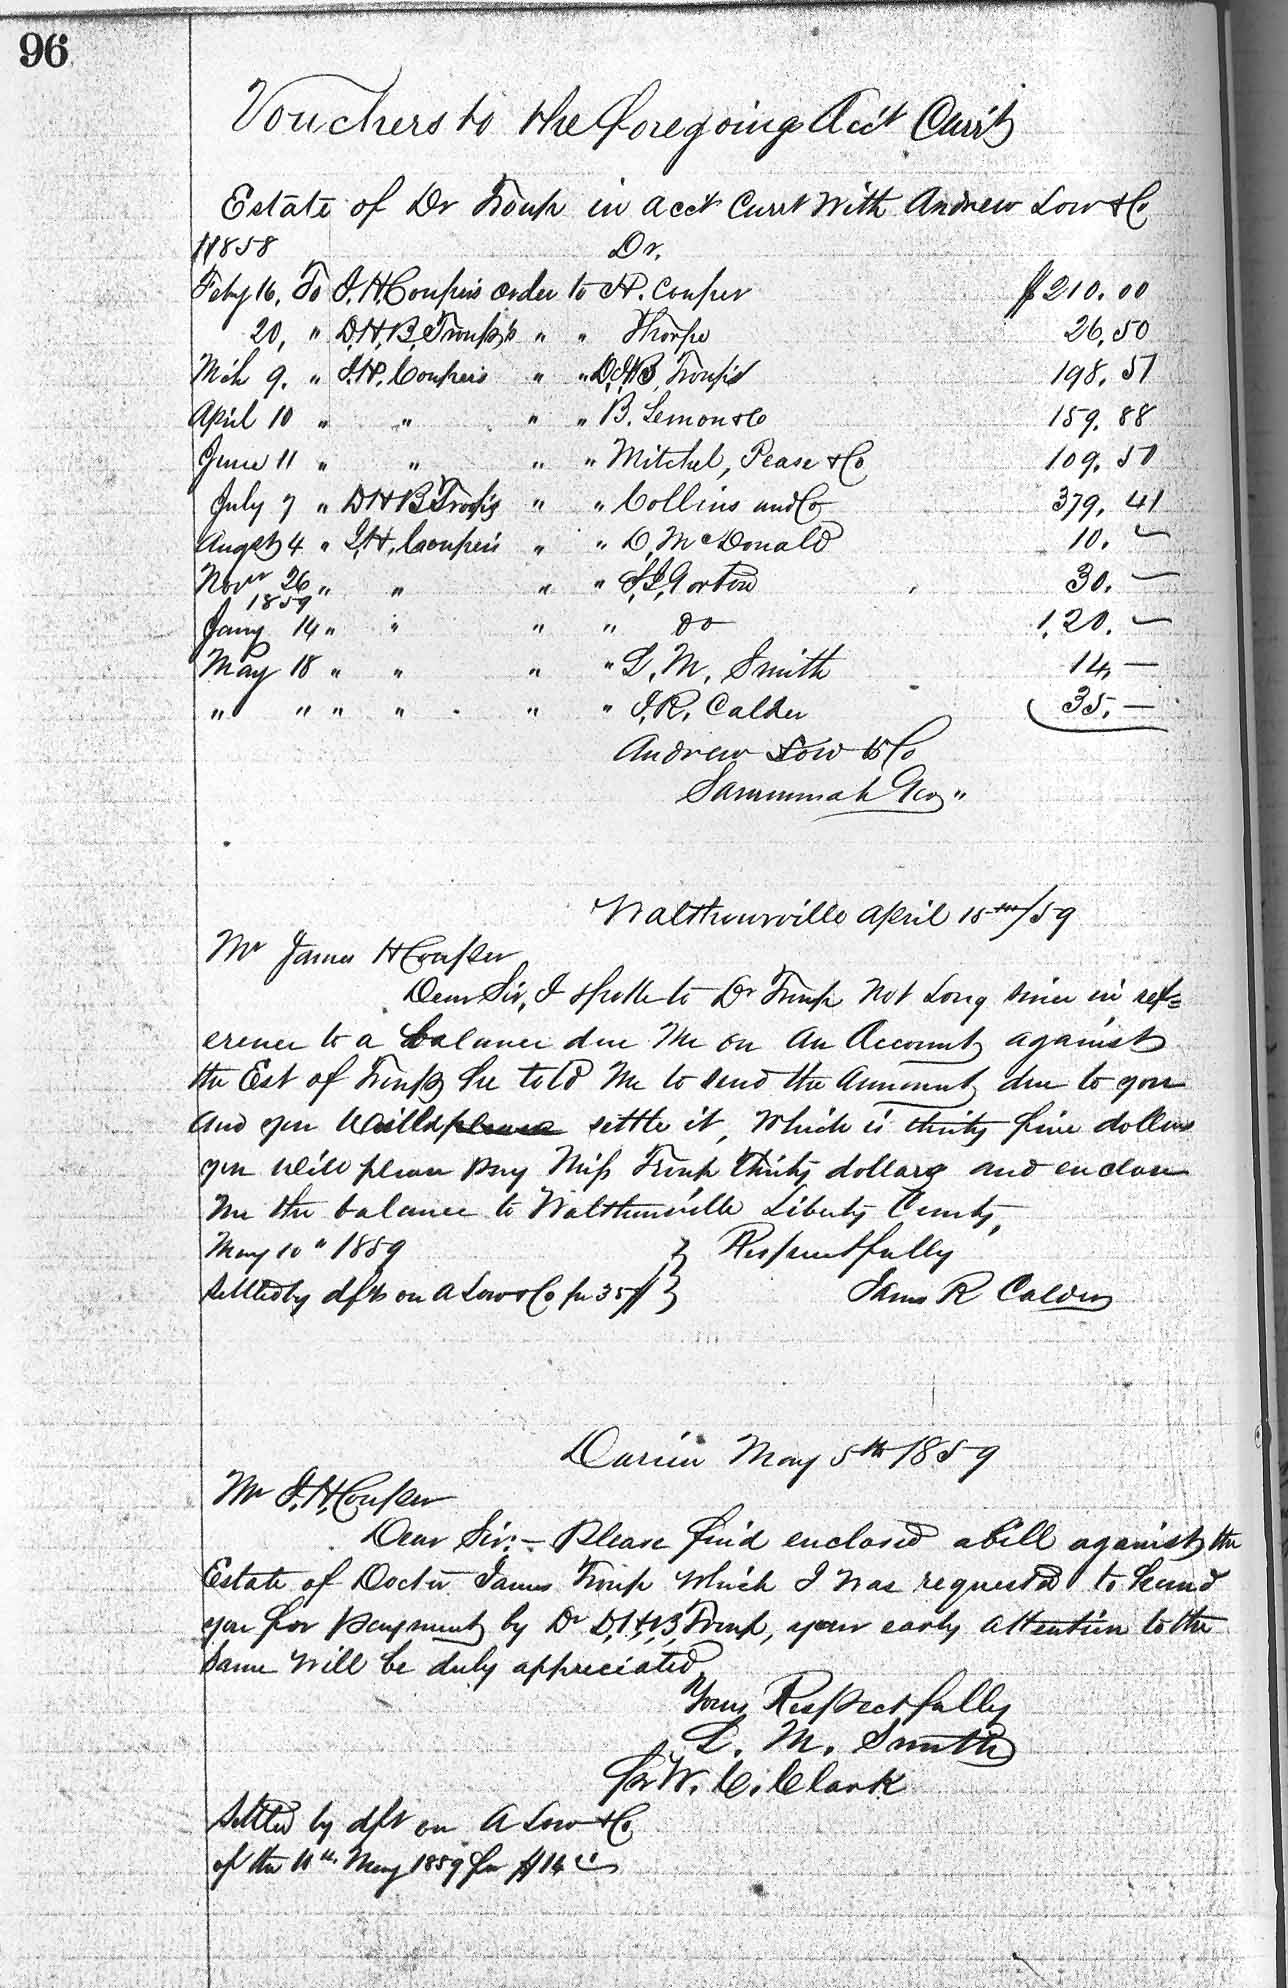 96
Vouchers to the foregoing Acct Currt
Estate of Dr Troup in acct Currt With Andrew Low & Co
1858 Dr.
Feby 16, To J. H. Couper's order to H. Couper $210.00
20, " D,H,B, Troup's " " Thorpe 26,50
Mch 9. " J.H. Couper's " " D,H,B, Troup's 198.57
April 10 " " " " B. Lemon & Co 159.88
June 11 " " " " Mitchel, Pease & Co 109.50
July 7 " D H B Troup's " " Collins and Co 379.41
Augst 4 " J,H, Couper's " " D, McDonald 10. –
Novr 26 " " " " S,J, Gorton 30. –
1859
Jany 14 " " " " do 1,20. –
May 18 " " " " L. M. Smith 14, –
" " " " " " J.R. Calder 35. –
Andrew Low & Co
Savannah Geo "
Walthourville April 15th/59
Mr James H Couper
Dear Sir, I spoke to Dr Troup not long since in ref=
erence to a balance due Me on An Account against
the Est of Troup he told Me to send the Ammount due to you
And you Would please settle it, Which is thirty five dollars
you will please pay Miss Troup thirty dollars and enclose
me the balance to Walthourville Liberty County,
May 10" 1859 } Respectfully
Settled by dft on A Low & Co for 35$ } James R Calder
Darien May 5th 1859
Mr J. H. Couper
Dear Sir; – Please find enclosed a bill against the
Estate of Doctor James Troup which I was requested to hand
you for payment by Dr D,H,B, Troup, your early attention to the
Same will be duly appreciated
Yours Respectfully
L. M. Smith
for W. C. Clark
Settled by dft on A Low & Co
of the 11th May 1859 for $14